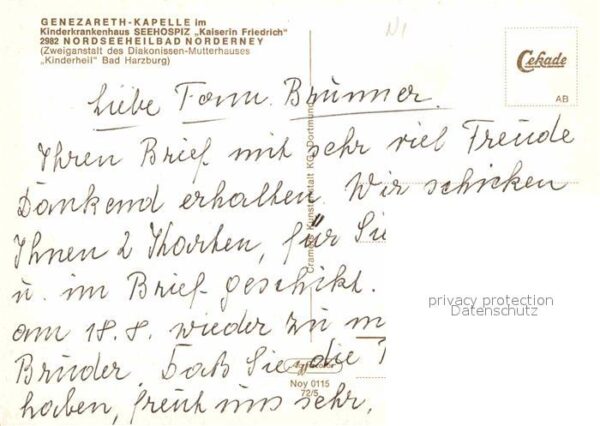 GENEZARETH-KAPELLE im
Kinderkrankenhaus SEEHOSPIZ „Kaiserin Friedrich"
2982 NORDSEEHEILBAD NORDERNEY
(Zweiganstalt des Diakonissen-Mutterhauses
„Kinderheil" Bad Harzburg)
Cekade
AB
Liebe Fam. Brünner.
Ihren Brief mit sehr viel Freude
Dankend erhalten. Wir schicken
Ihnen 2 Kharten, für Sie
u. im Brief geschikt.
am 18.8. wieder zu
Brüder. Daß Sie die
haben, freut uns sehr.
Cramers Kunstanstalt KG, Dortmund
Noy 0115
72/5
privacy protection
Datenschutz